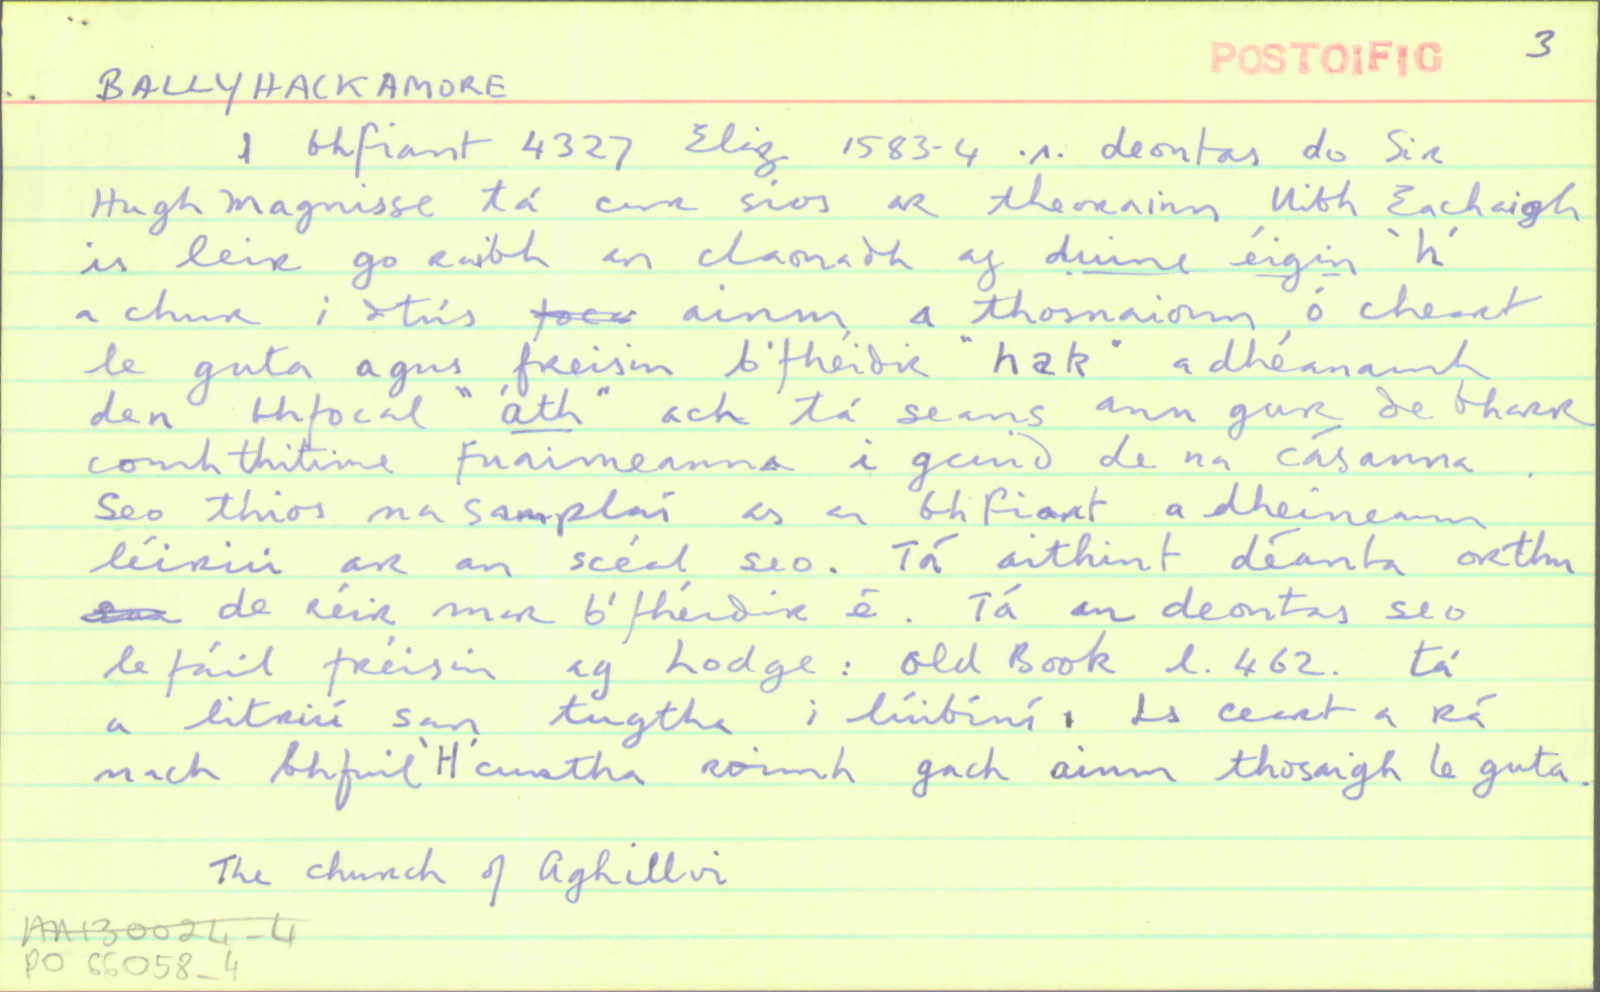 POSTOIFIG 3
BALLYHACKAMORE
I bhfiant 4327 Eliz 1583-4 .i. deontas do Sir
Hugh Magnisse tá cur síos ar theorainn Uibh Eachaigh
is leir go raibh an claonadh ag duine éigin 'h'
a chur i dtús ainm a thosnaíonn ó cheart
le guta agus freisin b'fhéidir "hak" a dhéanamh
den bhfocal "áth" ach tá seans ann gur de bharr
comhthitime fuaimeanna i gcuid de na cásanna.
Seo thíos na samplaí as an bhfiant a dheineann
léiriú ar an scéal seo. Tá aithint déanta orthu
de réir mar b'fhéidir é. Tá an deontas seo
le fáil fréisin ag Lodge: Old Book l. 462. Tá
a litriú san tugtha i lúibíní. Is ceart a rá
nach bhfuil 'H' curtha roimh gach ainm thosaigh le guta.
The church of Aghillvi
AN130024-4
PO 66058-4